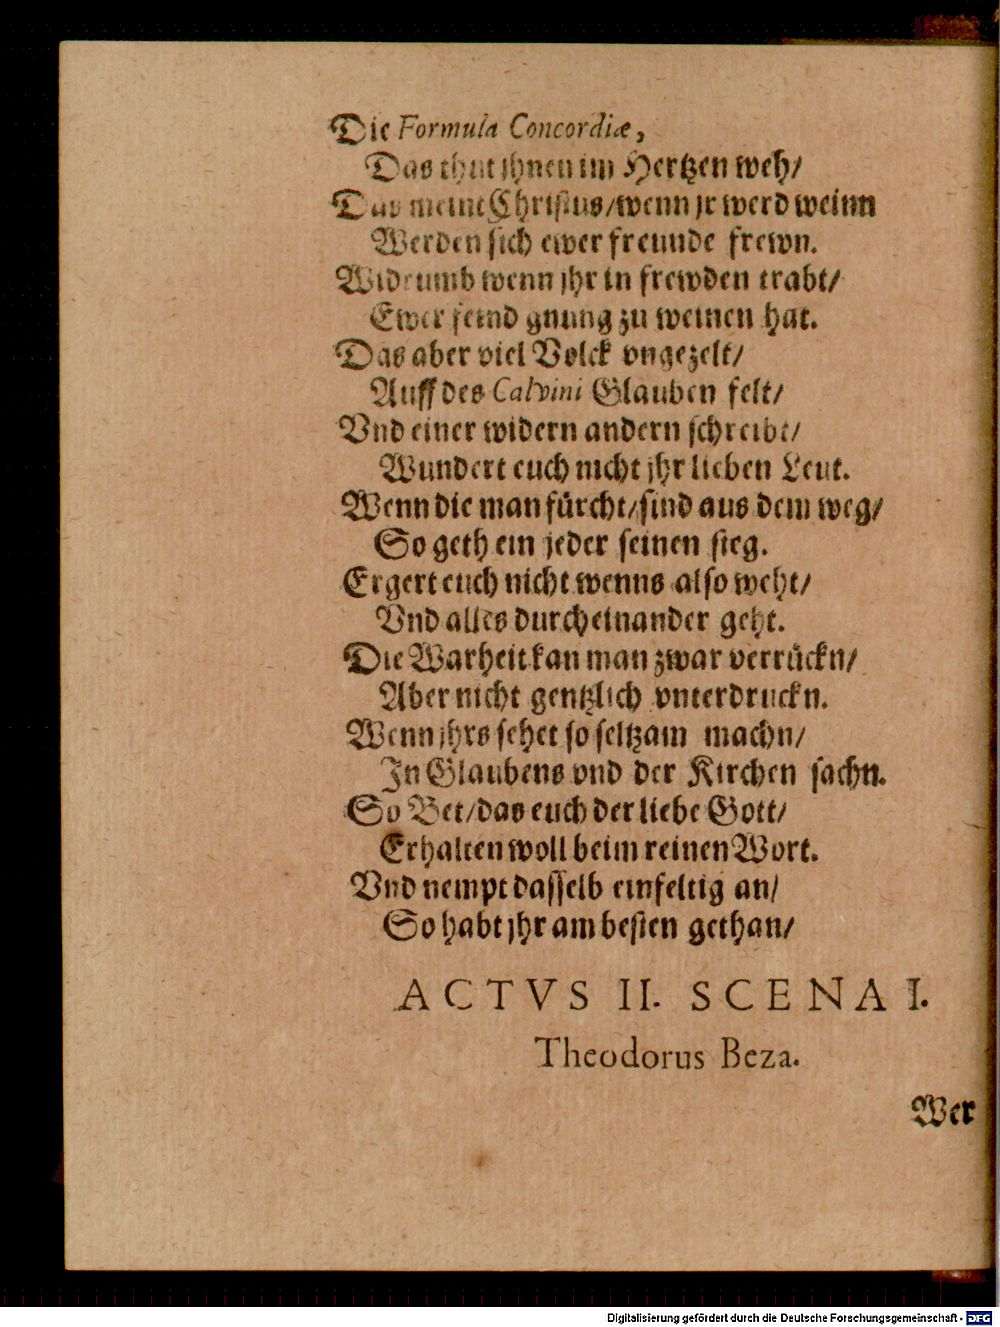 Die Formula Concordiæ,
Das thut jhnen im Hertzen weh/
Das meint Christus/wenn jr werd weinn
Werden sich ewer freunde frewn.
Widerumb wenn jhr in frewden trabt/
Ewer feind gnung zu weinen hat.
Das aber viel Volck vngezelt/
Auff des Calvini Glauben felt/
Vnd einer widern andern schreibt/
Wundert euch nicht jhr lieben Leut.
Wenn die man fürcht/sind aus dem weg/
So geth ein jeder seinen steg.
Ergert euch nicht wenns also weht/
Vnd alles durcheinander geht.
Die Warheit kan man zwar verrückn/
Aber nicht gentzlich vnterdruckn.
Wenn jhrs sehet so seltzam machn/
In Glaubens vnd der Kirchen sachn.
So Bet/das euch der liebe Gott/
Erhalten woll beim reinen Wort.
Vnd nempt dasselb einfeltig an/
So habt jhr am besten gethan/
ACTVS II. SCENA I.
Theodorus Beza.
Wer
Digitalisierung gefördert durch die Deutsche Forschungsgemeinschaft - DFG